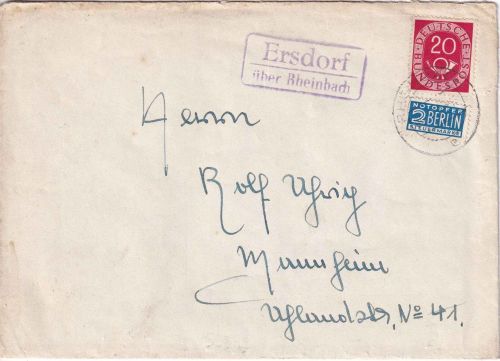 Ersdorf
über Rheinbach
DEUTSCHE
BUNDESPOST
20
NOTOPFER
2 BERLIN
STEUERMARKE
Herrn
Rolf Uhrig
Mannheim
Uhlandstr. No 41.